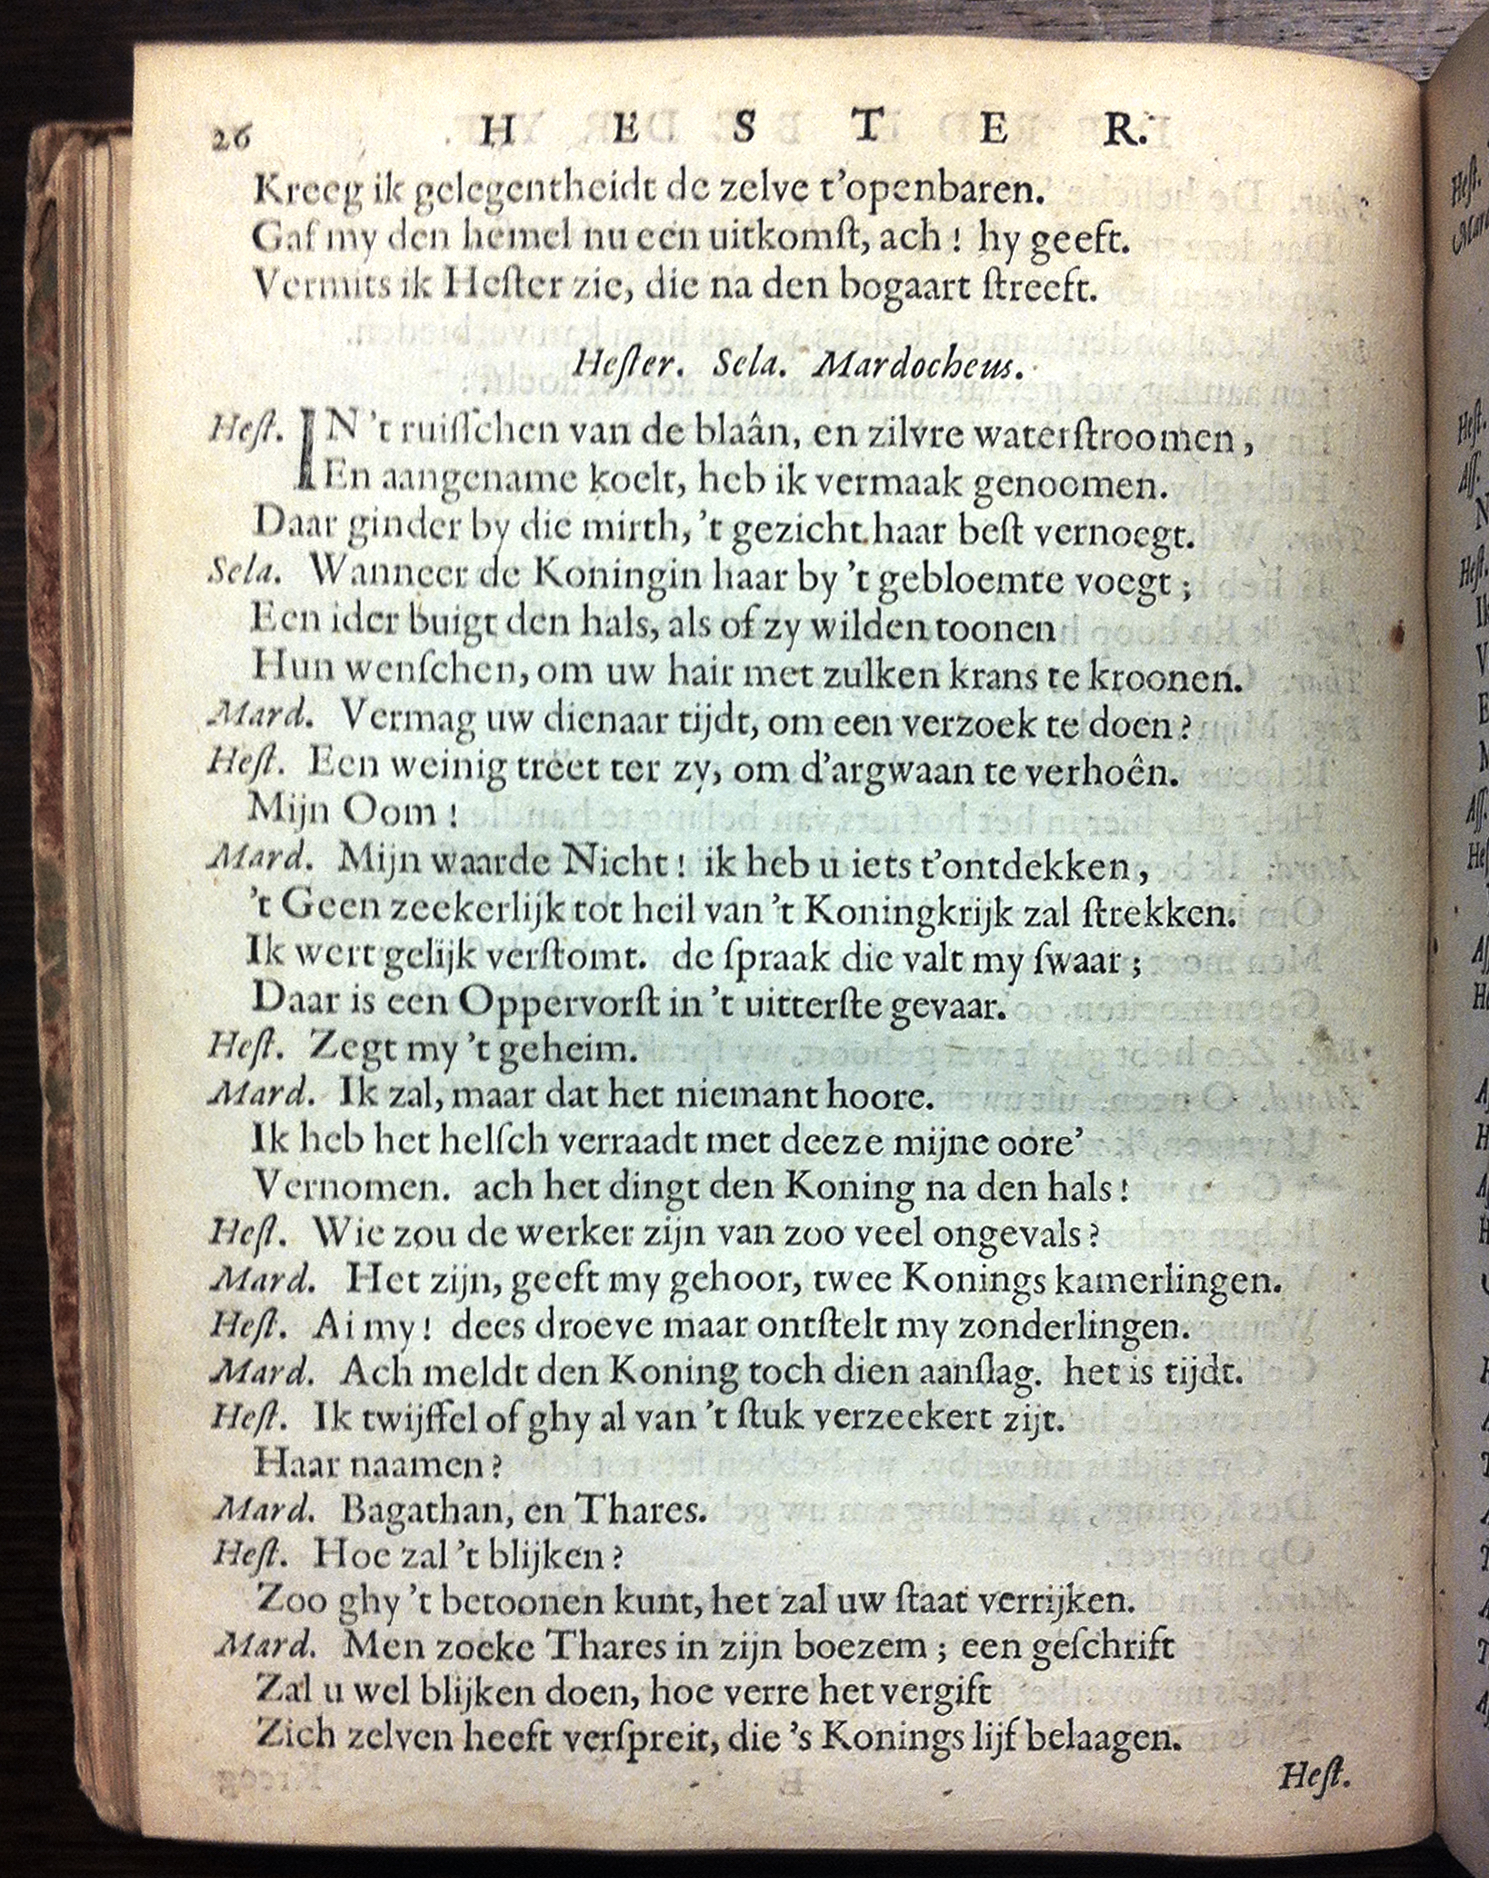 26 HESTER.
Kreeg ik gelegentheidt de zelve t'openbaren.
Gaf my den hemel nu een uitkomſt, ach! hy geeft.
Vermits ik Heſter zie, die na den bogaart ſtreeft.
Heſter. Sela. Mardocheus.
Heſt. IN 't ruiſſchen van de blaân, en zilvre waterſtroomen,
En aangename koelt, heb ik vermaak genoomen.
Daar ginder by die mirth, 't gezicht haar beſt vernoegt.
Sela. Wanneer de Koningin haar by 't gebloemte voegt;
Een ider buigt den hals, als of zy wilden toonen
Hun wenſchen, om uw hair met zulken krans te kroonen.
Mard. Vermag uw dienaar tijdt, om een verzoek te doen?
Heſt. Een weinig treet ter zy, om d'argwaan te verhoên.
Mijn Oom!
Mard. Mijn waarde Nicht! ik heb u iets t'ontdekken,
't Geen zeekerlijk tot heil van 't Koningkrijk zal ſtrekken.
Ik wert gelijk verſtomt. de ſpraak die valt my ſwaar;
Daar is een Oppervorſt in 't uitterſte gevaar.
Heſt. Zegt my 't geheim.
Mard. Ik zal, maar dat het niemant hoore.
Ik heb het helſch verraadt met deeze mijne oore'
Vernomen. ach het dingt den Koning na den hals!
Heſt. Wie zou de werker zijn van zoo veel ongevals?
Mard. Het zijn, geeft my gehoor, twee Konings kamerlingen.
Heſt. Ai my! dees droeve maar ontſtelt my zonderlingen.
Mard. Ach meldt den Koning toch dien aanſlag. het is tijdt.
Heſt. Ik twijffel of ghy al van 't ſtuk verzeekert zijt.
Haar naamen?
Mard. Bagathan, en Thares.
Heſt. Hoe zal 't blijken?
Zoo ghy 't betoonen kunt, het zal uw ſtaat verrijken.
Mard. Men zoeke Thares in zijn boezem; een geſchrift
Zal u wel blijken doen, hoe verre het vergift
Zich zelven heeft verſpreit, die 's Konings lijf belaagen.
Heſt.